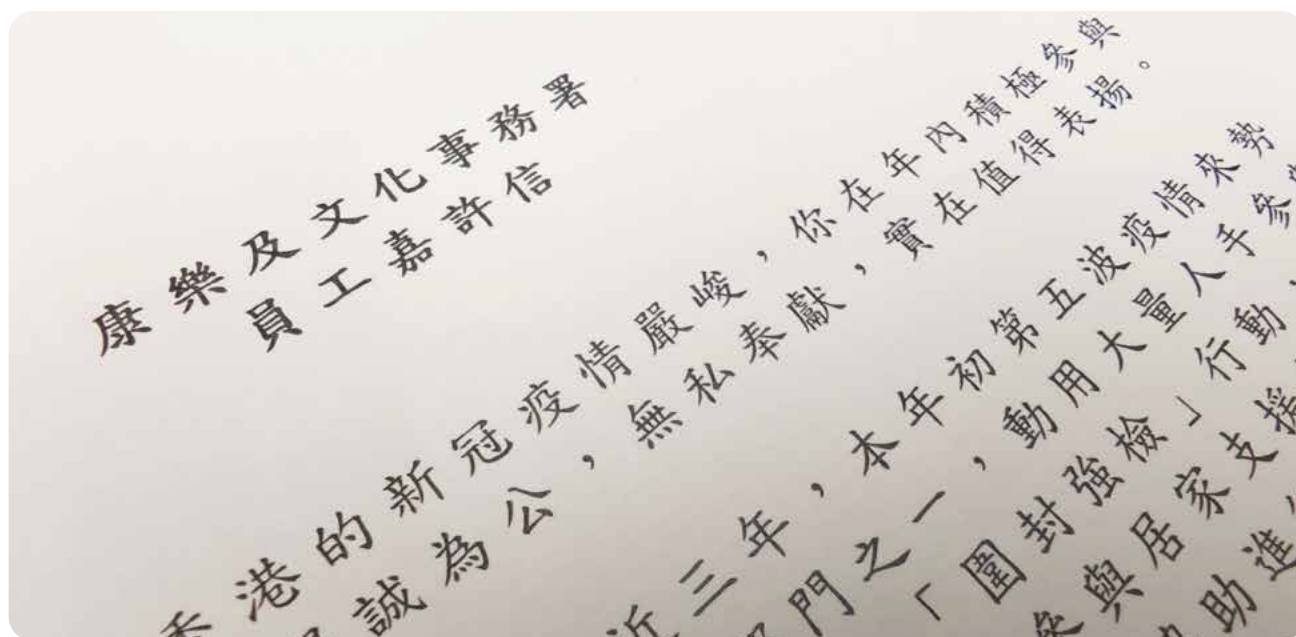 康樂及文化事務署
員工嘉許信
香港的新冠疫情嚴峻，你在年內積極參與
誠為公，無私奉獻，實在值得表揚。
近三年，本年初第五波疫情來勢
部門之一，動用大量人手參與
「圍封強檢」行動，
參與居家支援
助進